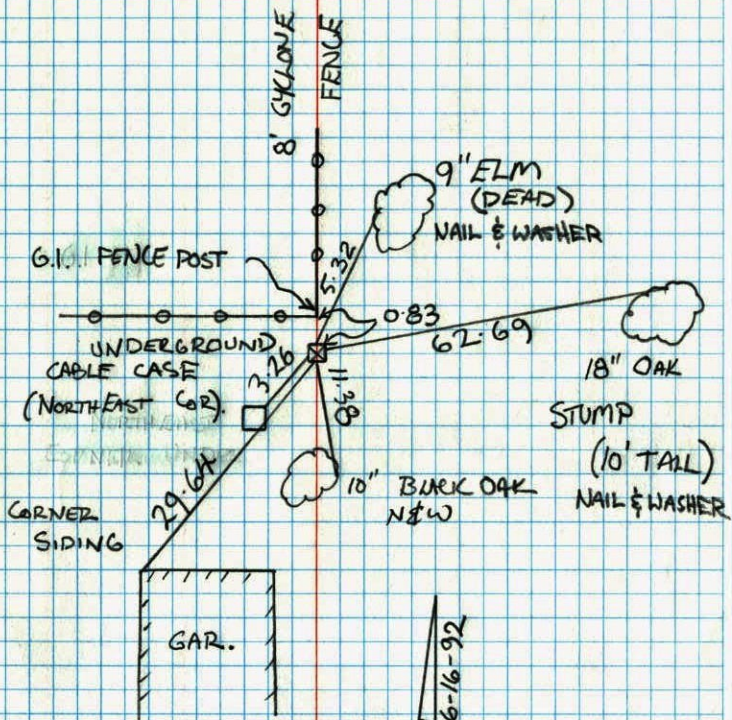 8' CYCLONE
FENCE
9" ELM
(DEAD)
NAIL & WASHER
G.I. FENCE POST
5.32
0.83
62.69
UNDERGROUND
CABLE CASE
(NORTHEAST COR).
3.26
11.38
18" OAK
STUMP
(10' TALL)
NAIL & WASHER
10" BLACK OAK
N&W
29.64
CORNER
SIDING
GAR.
6-16-92